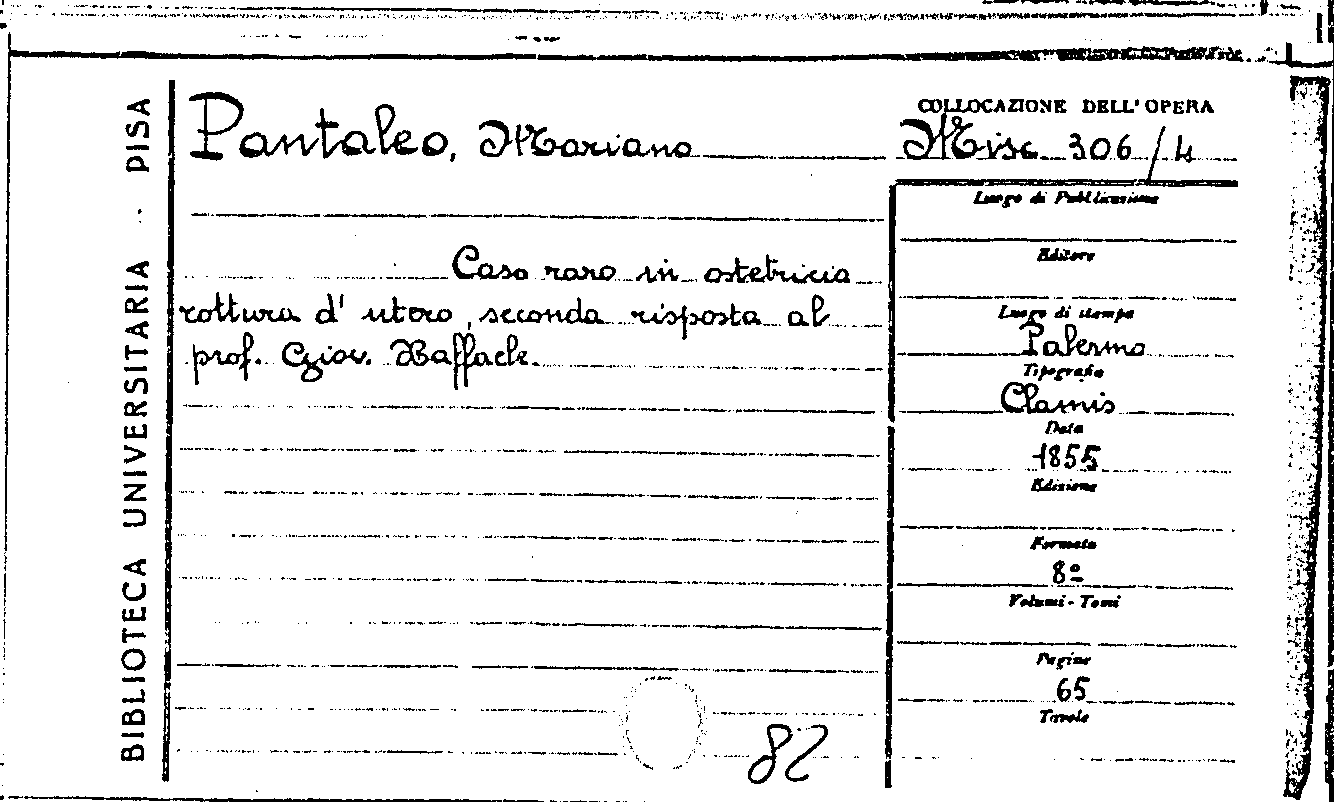 BIBLIOTECA UNIVERSITARIA - PISA
Pantaleo, Mariano
Caso raro in ostetricia
rottura d' utero, seconda risposta al
prof. Giov. Raffaele.
82
COLLOCAZIONE DELL' OPERA
Misc. 306/4
Luogo di Pubblicazione
Editore
Luogo di stampa
Palermo
Tipografia
Clamis
Data
1855
Edizione
Formato
8º
Volumi - Tomi
Pagine
65
Tavole